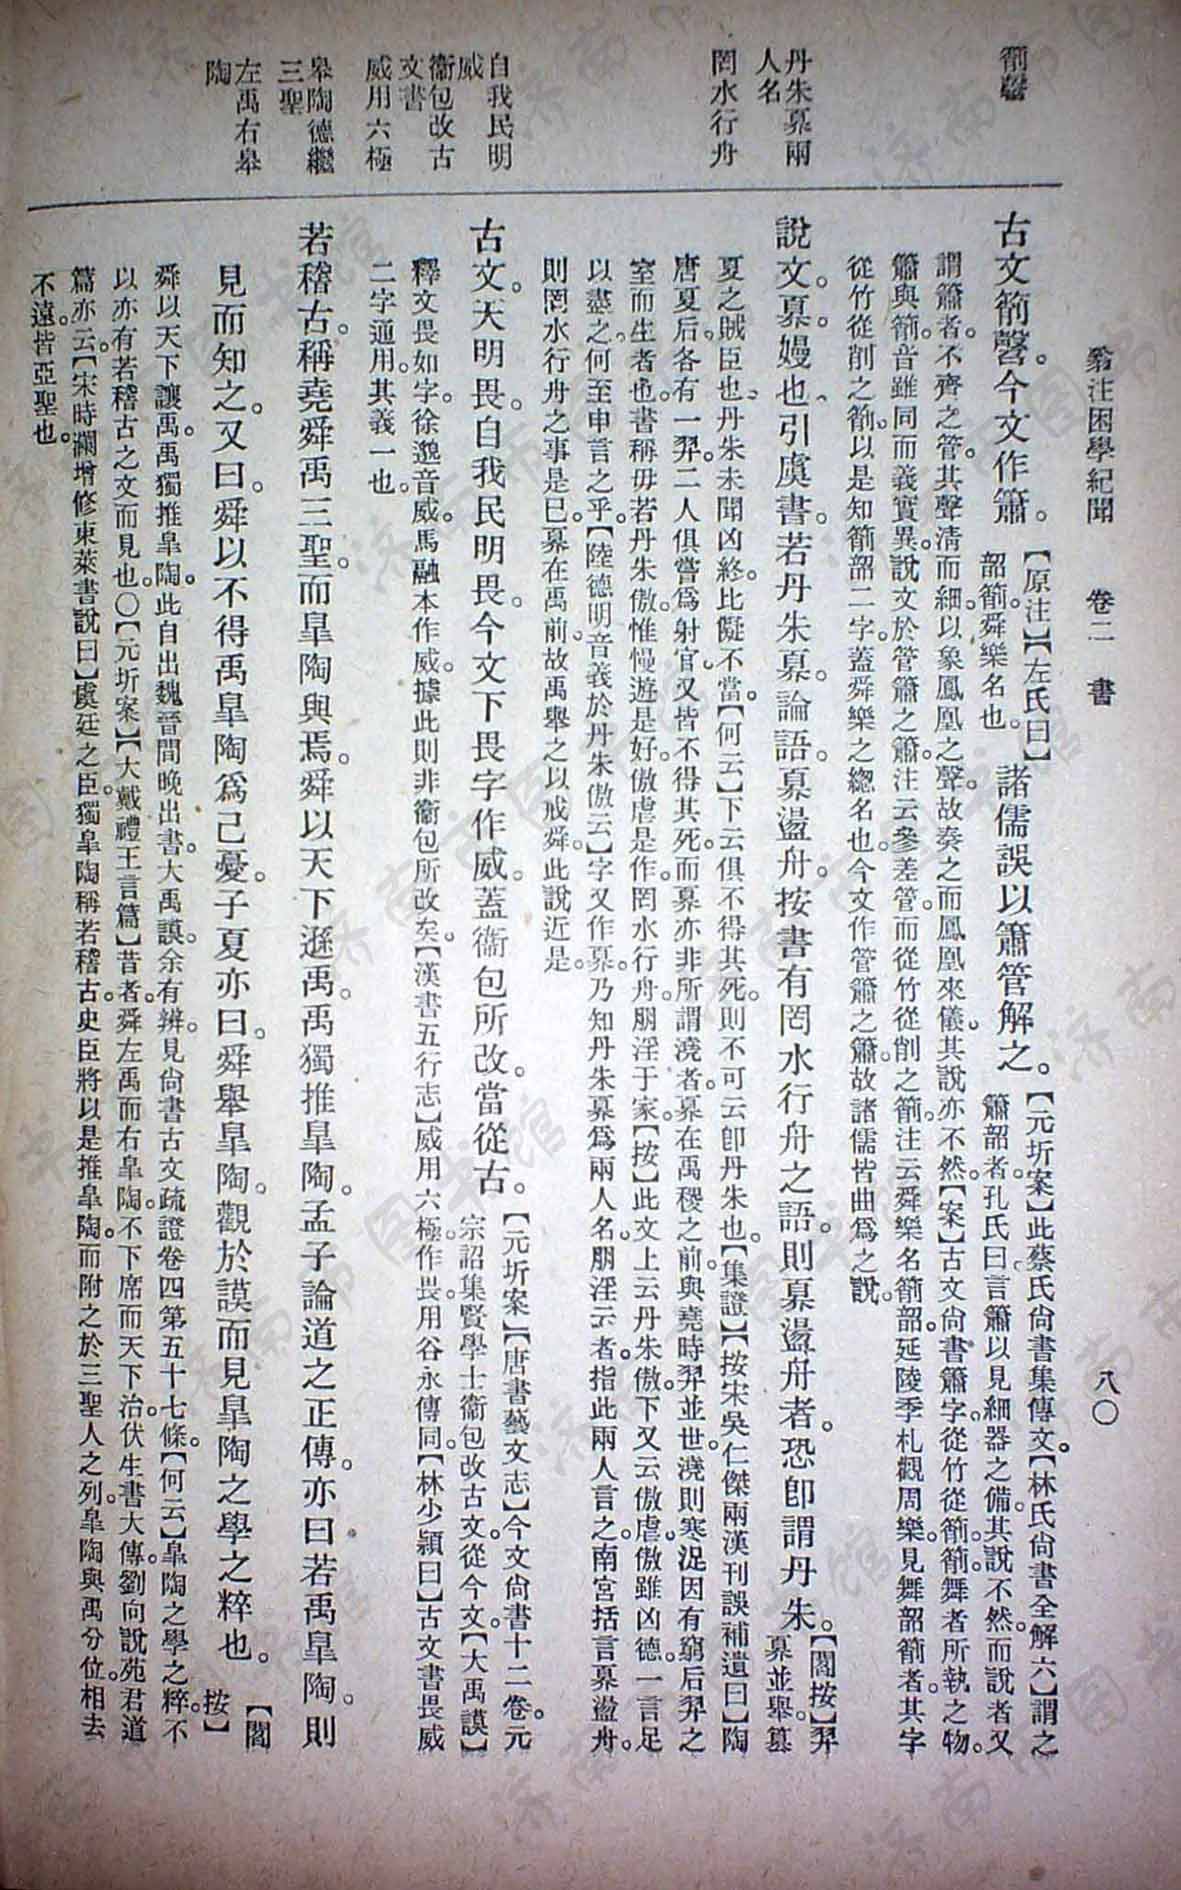 翁注困學紀聞　卷二　書　八〇
箾韶
古文箾韶。今文作簫。【原注】【左氏曰】
韶箾。舜樂名也。
諸儒誤以簫管解之。【元圻案】此蔡氏尚書集傳文。【林氏尚書全解六】謂之
簫韶者。孔氏曰。言簫以見細器之備。其說不然。而說者又
謂簫者。不齊之管。其聲清而細。以象鳳凰之聲。故奏之而鳳凰來儀。其說亦不然。【案】古文尚書簫字。從竹從箾。箾。舞者所執之物。
簫與箾。音雖同而義實異。說文於管簫之簫。注云參差管。而從竹從削之箾。注云舜樂名箾韶。延陵季札觀周樂。見舞韶箾者。其字
從竹從削之箾。以是知箾韶二字。蓋舜樂之總名也。今文作管簫之簫。故諸儒皆曲為之說。
丹朱奡兩
人名
罔水行舟
說文。奡。嫚也。引虞書。若丹朱奡。論語。奡盪舟。按書有罔水行舟之語。則奡盪舟者。恐即謂丹朱。【閻按】羿
奡並舉。篡
夏之賊臣也。丹朱未聞凶終。比儗不當。【何云】下云俱不得其死。則不可云即丹朱也。【集證】【按宋吳仁傑兩漢刊誤補遺曰】陶
唐夏后。各有一羿。二人俱嘗為射官。又皆不得其死。而奡亦非所謂澆者。奡在禹稷之前。與堯時羿並世。澆則寒浞因有窮后羿之
室而生者也。書稱毋若丹朱傲。惟慢遊是好。傲虐是作。罔水行舟。朋淫于家。【按】此文上云丹朱傲。下又云傲虐。傲雖凶德。一言足
以盡之。何至申言之乎。【陸德明音義於丹朱傲云】字又作奡。乃知丹朱奡為兩人名。朋淫云者。指此兩人言之。南宮括言奡盪舟。
則罔水行舟之事是已。奡在禹前。故禹舉之以戒舜。此說近是。
自我民明
威
衞包改古
文書
威用六極
古文。天明畏。自我民明畏。今文下畏字作威。蓋衞包所改。當從古。【元圻案】【唐書藝文志】今文尚書十二卷。元
宗詔集賢學士衞包改古文。從今文。【大禹謨】
釋文畏如字。徐邈音威。馬融本作威。據此則非衞包所改矣。【漢書五行志】威用六極。作畏。用谷永傳同。【林少穎曰】古文書畏威
二字通用。其義一也。
皋陶德繼
三聖
左禹右皋
陶
若稽古。稱堯舜禹三聖。而皋陶與焉。舜以天下遜禹。禹獨推皋陶。孟子論道之正傳。亦曰若禹皋陶。則
見而知之。又曰。舜以不得禹皋陶為己憂。子夏亦曰。舜舉皋陶。觀於謨而見皋陶之學之粹也。【閻
按】
舜以天下讓禹。禹獨推皋陶。此自出魏晉間晚出書。大禹謨。余有辨。見尚書古文疏證卷四第五十七條。【何云】皋陶之學之粹。不
以亦有若稽古之文而見也。〇【元圻案】【大戴禮王言篇】昔者。舜左禹而右皋陶。不下席而天下治。伏生書大傳。劉向說苑君道
篇亦云。【宋時瀾增修東萊書說曰】虞廷之臣。獨皋陶稱若稽古。史臣將以是推皋陶。而附之於三聖人之列。皋陶與禹分位。相去
不遠。皆亞聖也。